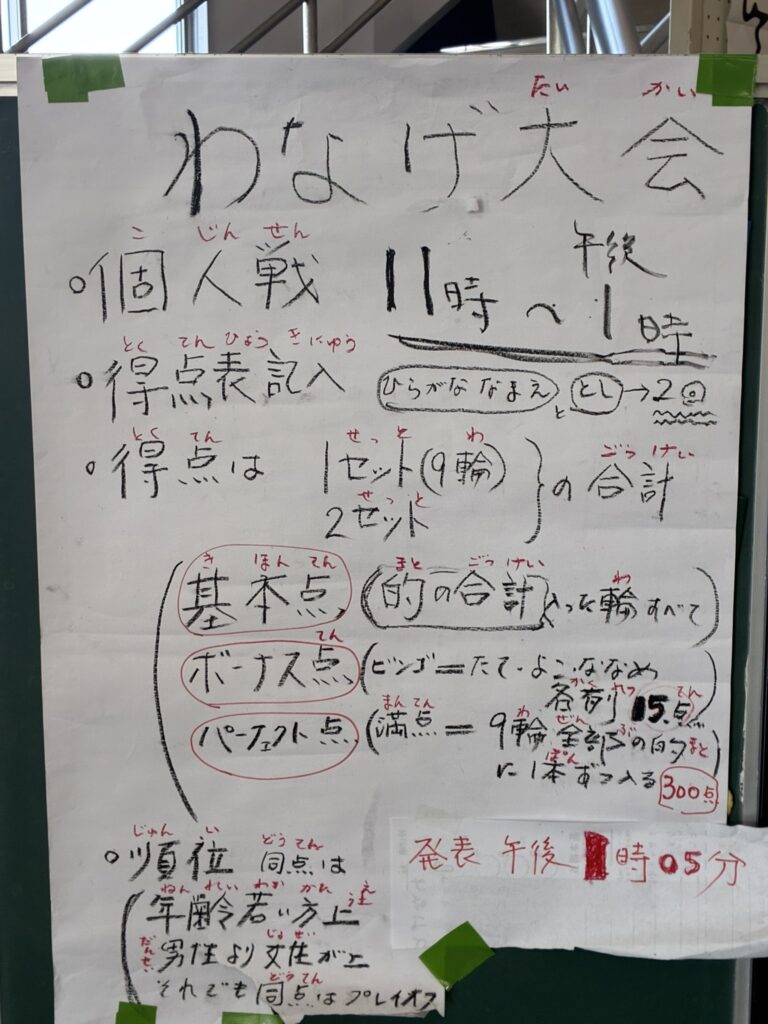 たい かい
わなげ大会
こ じん せん
○個人戦 11時〜午後1時
とく てん ひょう き にゅう
○得点表記入 ひらがな なまえ と とし→2回
とく てん せっ と わ ごう けい
○得点は 1セット(9輪) の合計
せっ と
2セット
き ほん てん まと ごう けい わ
基本点 (的の合計 入った輪すべて)
てん
ボーナス点 (ビンゴ=たて・よこ・ななめ
かく れつ てん
各列 15点)
まん てん わ ぜん ぶ まと
パーフェクト点 (満点=9輪全部の的
ぽん
に1本ずつ入る) 300点
発表 午後 1時05分
じゅん い どう てん
○順位 同点は
ねん れい わか かた うえ
(年齢若い方上
だんせい じょ せい
男性より女性が上
どう てん
それでも同点はプレイオフ